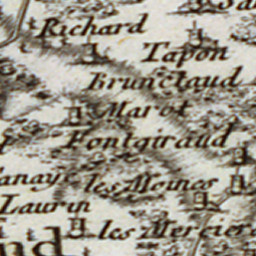 Richard
Tapon
Brunetaud
Marot
Fontgiraud
les Moines
Laurin
les Mercier